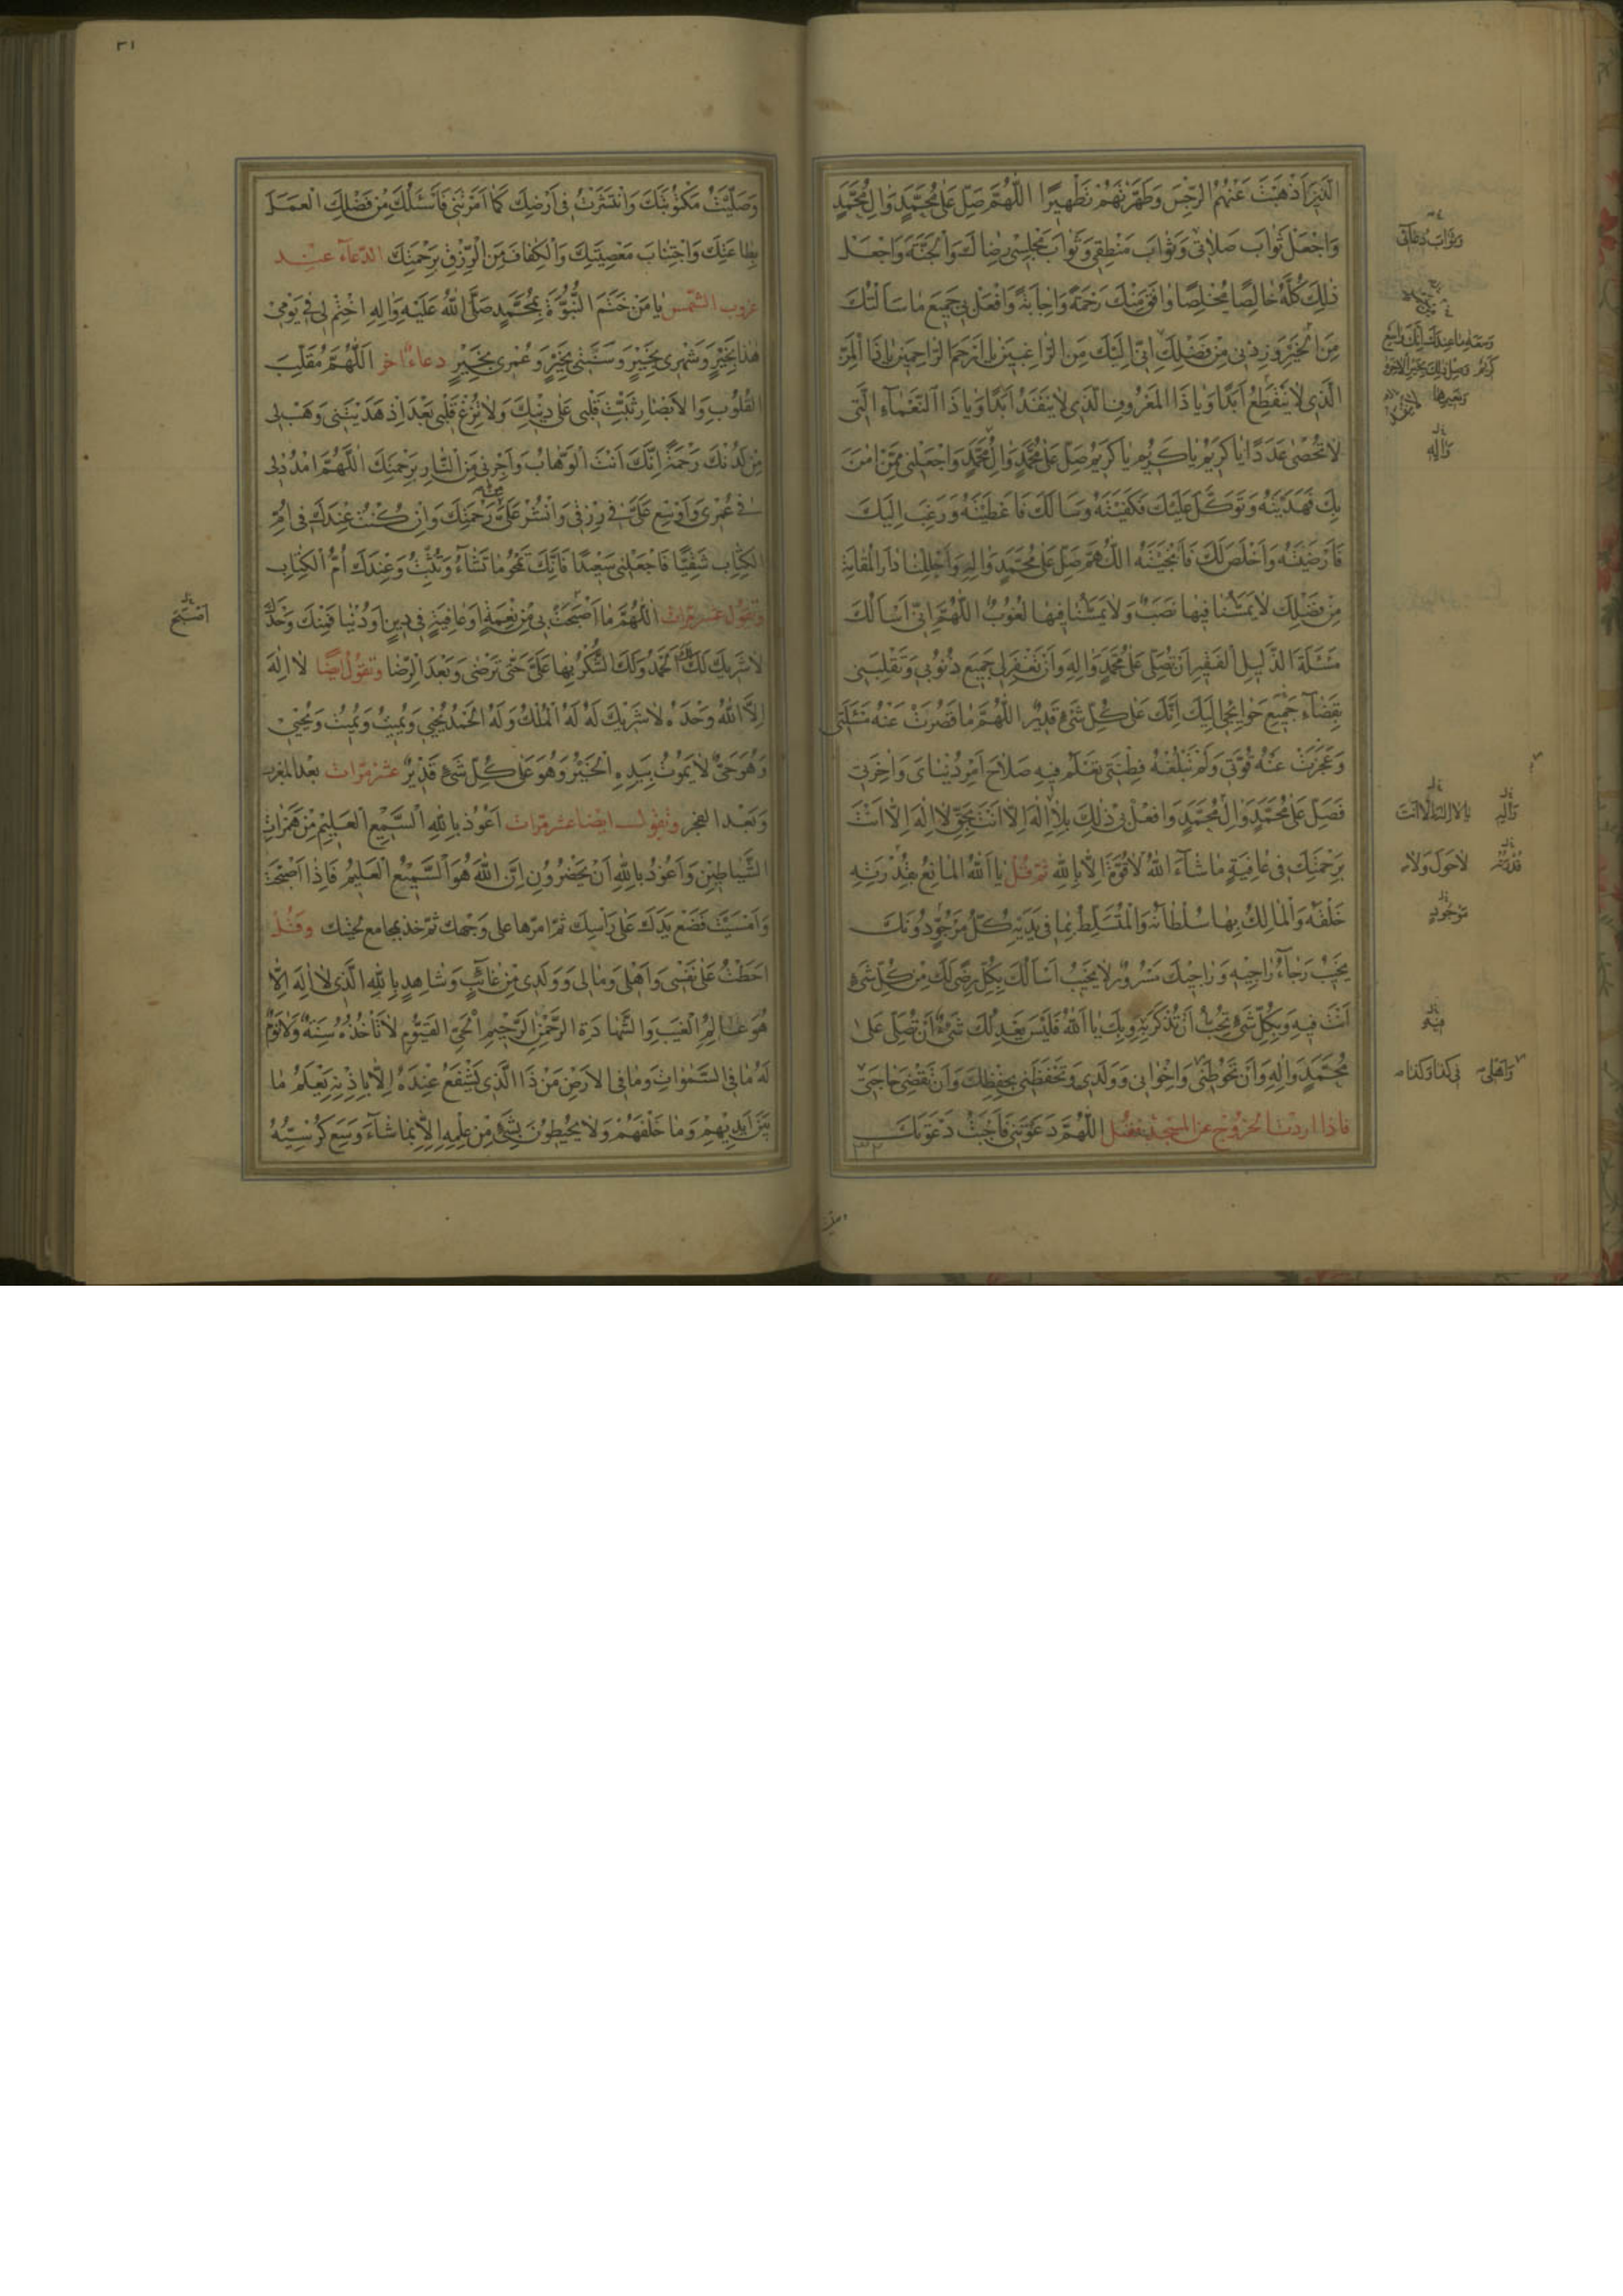 الَّذِينَ اَذْهَبْتَ عَنْهُمُ الرِّجْسَ وَطَهَّرْتَهُمْ تَطْهِيرًا اَللّٰهُمَّ صَلِّ عَلٰى مُحَمَّدٍ وَاٰلِ مُحَمَّدٍ
وَاجْعَلْ ثَوَابَ صَلَاتِي وَثَوَابَ مَنْطِقِي وَثَوَابَ مَجْلِسِي رِضَاكَ وَالْجَنَّةَ وَاجْعَلْ
ذٰلِكَ كُلَّهُ خَالِصًا مُخْلِصًا وَافَقَ مِنْكَ رَحْمَةً وَاِجَابَةً وَافْعَلْ بِي جَمِيعَ مَا سَاَلْتُكَ
مِنَ الْخَيْرِ وَزِدْنِي مِنْ فَضْلِكَ اِنِّي اِلَيْكَ مِنَ الرَّاغِبِينَ يَا اَرْحَمَ الرَّاحِمِينَ يَا ذَا الْمَنِّ
الَّذِي لَا يَنْقَطِعُ اَبَدًا وَيَا ذَا الْمَعْرُوفِ الَّذِي لَا يَنْفَدُ اَبَدًا وَيَا ذَا النَّعْمَاءِ الَّتِي
لَا تُحْصٰى عَدَدًا يَا كَرِيمُ يَا كَرِيمُ يَا كَرِيمُ صَلِّ عَلٰى مُحَمَّدٍ وَاٰلِ مُحَمَّدٍ وَاجْعَلْنِي مِمَّنْ اٰمَنَ
بِكَ فَهَدَيْتَهُ وَتَوَكَّلَ عَلَيْكَ فَكَفَيْتَهُ وَسَاَلَكَ فَاَعْطَيْتَهُ وَرَغِبَ اِلَيْكَ
فَاَرْضَيْتَهُ وَاَخْلَصَ لَكَ فَاَنْجَيْتَهُ اللّٰهُمَّ صَلِّ عَلٰى مُحَمَّدٍ وَاٰلِهِ وَاَحْلِلْنَا دَارَ الْمُقَامَةِ
مِنْ فَضْلِكَ لَا يَمَسُّنَا فِيهَا نَصَبٌ وَلَا يَمَسُّنَا فِيهَا لُغُوبٌ اَللّٰهُمَّ اِنِّي اَسْاَلُكَ
مَسْئَلَةَ الذَّلِيلِ الْفَقِيرِ اَنْ تُصَلِّيَ عَلٰى مُحَمَّدٍ وَاٰلِهِ وَاَنْ تَغْفِرَ لِي جَمِيعَ ذُنُوبِي وَتَقْلِبَنِي
بِقَضَاءِ جَمِيعِ حَوَائِجِي اِلَيْكَ اِنَّكَ عَلٰى كُلِّ شَيْءٍ قَدِيرٌ اللّٰهُمَّ مَا قَصُرَتْ عَنْهُ مَسْئَلَتِي
وَعَجَزَتْ عَنْهُ قُوَّتِي وَلَمْ تَبْلُغْهُ فِطْنَتِي تَعْلَمُ فِيهِ صَلَاحَ اَمْرِ دُنْيَايَ وَاٰخِرَتِي
فَصَلِّ عَلٰى مُحَمَّدٍ وَاٰلِ مُحَمَّدٍ وَافْعَلْ بِي ذٰلِكَ بِلَا اِلٰهَ اِلَّا اَنْتَ بِحَقِّ لَا اِلٰهَ اِلَّا اَنْتَ
بِرَحْمَتِكَ فِي عَافِيَةٍ مَا شَاءَ اللّٰهُ لَا قُوَّةَ اِلَّا بِاللّٰهِ ثم قل يَا اَللّٰهُ الْمَانِعُ بِقُدْرَتِهِ
خَلْقَهُ وَالْمَالِكُ بِهَا سُلْطَانَهُ وَالْمُتَسَلِّطُ بِمَا فِي يَدَيْهِ كُلُّ مَرْجُوٍّ دُونَكَ
يَخِيبُ رَجَاءُ رَاجِيهِ وَرَاجِيكَ مَسْرُورٌ لَا يَخِيبُ اَسْاَلُكَ بِكُلِّ رِضًى لَكَ مِنْ كُلِّ شَيْءٍ
اَنْتَ فِيهِ وَبِكُلِّ شَيْءٍ تُحِبُّ اَنْ تُذْكَرَ بِهِ وَبِكَ يَا اَللّٰهُ فَلَيْسَ يَعْدِلُكَ شَيْءٌ اَنْ تُصَلِّيَ عَلٰى
مُحَمَّدٍ وَاٰلِهِ وَاَنْ تَحُوطَنِي وَاِخْوَانِي وَوَلَدِي وَتَحْفَظَنِي بِحِفْظِكَ وَاَنْ تَقْضِيَ حَاجَتِي
فاذا اردت الخروج من المسجد فقل اَللّٰهُمَّ دَعَوْتَنِي فَاَجَبْتُ دَعْوَتَكَ
وَثَوَابَ دُعَائِي
وَاٰلِهِ
وَاٰلِهِ
يَا لَا اِلٰهَ اِلَّا اَنْتَ
لَا حَوْلَ وَلَا
فِي كذا وكذا
٣١
وَصَلَّيْتُ مَكْتُوبَتَكَ وَانْتَشَرْتُ فِي اَرْضِكَ كَمَا اَمَرْتَنِي فَاَسْئَلُكَ مِنْ فَضْلِكَ الْعَمَلَ
بِطَاعَتِكَ وَاجْتِنَابَ مَعْصِيَتِكَ وَالْكَفَافَ مِنَ الرِّزْقِ بِرَحْمَتِكَ الدّعاء عند
غروب الشّمس يَا مَنْ خَتَمَ النُّبُوَّةَ بِمُحَمَّدٍ صَلَّى اللّٰهُ عَلَيْهِ وَاٰلِهِ اخْتِمْ لِي فِي يَوْمِي
هٰذَا بِخَيْرٍ وَشَهْرِي بِخَيْرٍ وَسَنَتِي بِخَيْرٍ وَعُمْرِي بِخَيْرٍ دعاء اخر اَللّٰهُمَّ مُقَلِّبَ
الْقُلُوبِ وَالْاَبْصَارِ ثَبِّتْ قَلْبِي عَلٰى دِينِكَ وَلَا تُزِغْ قَلْبِي بَعْدَ اِذْ هَدَيْتَنِي وَهَبْ لِي
مِنْ لَدُنْكَ رَحْمَةً اِنَّكَ اَنْتَ الْوَهَّابُ وَاَجِرْنِي مِنَ النَّارِ بِرَحْمَتِكَ اَللّٰهُمَّ امْدُدْ لِي
فِي عُمْرِي وَاَوْسِعْ عَلَيَّ فِي رِزْقِي وَانْشُرْ عَلَيَّ رَحْمَتَكَ وَاِنْ كُنْتُ عِنْدَكَ فِي اُمِّ
الْكِتَابِ شَقِيًّا فَاجْعَلْنِي سَعِيدًا فَاِنَّكَ تَمْحُو مَا تَشَاءُ وَتُثْبِتُ وَعِنْدَكَ اُمُّ الْكِتَابِ
وتقول عشر مرات اَللّٰهُمَّ مَا اَصْبَحَتْ بِي مِنْ نِعْمَةٍ اَوْ عَافِيَةٍ فِي دِينٍ اَوْ دُنْيَا فَمِنْكَ وَحْدَكَ
لَا شَرِيكَ لَكَ لَكَ الْحَمْدُ وَلَكَ الشُّكْرُ بِهَا عَلَيَّ حَتّٰى تَرْضٰى وَبَعْدَ الرِّضَا وتقول ايضا لَا اِلٰهَ
اِلَّا اللّٰهُ وَحْدَهُ لَا شَرِيكَ لَهُ لَهُ الْمُلْكُ وَلَهُ الْحَمْدُ يُحْيِي وَيُمِيتُ وَيُمِيتُ وَيُحْيِي
وَهُوَ حَيٌّ لَا يَمُوتُ بِيَدِهِ الْخَيْرُ وَهُوَ عَلٰى كُلِّ شَيْءٍ قَدِيرٌ عشر مرّات بعد المغرب
وبعد الفجر وتقول ايضا عشر مرّات اَعُوذُ بِاللّٰهِ السَّمِيعِ الْعَلِيمِ مِنْ هَمَزَاتِ
الشَّيَاطِينِ وَاَعُوذُ بِاللّٰهِ اَنْ يَحْضُرُونِ اِنَّ اللّٰهَ هُوَ السَّمِيعُ الْعَلِيمُ فَاِذَا اَصْبَحْتَ
وَاَمْسَيْتَ فَضَعْ يَدَكَ عَلٰى رَاْسِكَ ثمّ امرّها على وجهك ثمّ خذ بمجامع لحيتك وقل
اَحَطْتُ عَلٰى نَفْسِي وَاَهْلِي وَمَالِي وَوَلَدِي مِنْ غَائِبٍ وَشَاهِدٍ بِاللّٰهِ الَّذِي لَا اِلٰهَ اِلَّا
هُوَ عَالِمُ الْغَيْبِ وَالشَّهَادَةِ الرَّحْمٰنُ الرَّحِيمُ الْحَيُّ الْقَيُّومُ لَا تَاْخُذُهُ سِنَةٌ وَلَا نَوْمٌ
لَهُ مَا فِي السَّمٰوَاتِ وَمَا فِي الْاَرْضِ مَنْ ذَا الَّذِي يَشْفَعُ عِنْدَهُ اِلَّا بِاِذْنِهِ يَعْلَمُ مَا
بَيْنَ اَيْدِيهِمْ وَمَا خَلْفَهُمْ وَلَا يُحِيطُونَ بِشَيْءٍ مِنْ عِلْمِهِ اِلَّا بِمَا شَاءَ وَسِعَ كُرْسِيُّهُ